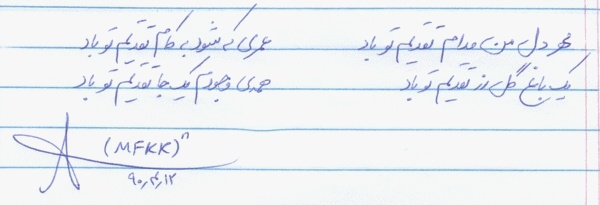 مهر دل من مدام تقدیم تو باد عمری که شود به کام تقدیم تو باد
یک باغ گل رز تقدیم تو باد همه‌ی وجودم یک جا تقدیم تو باد
(MFKK)ⁿ
۹۰,۴,۱۲